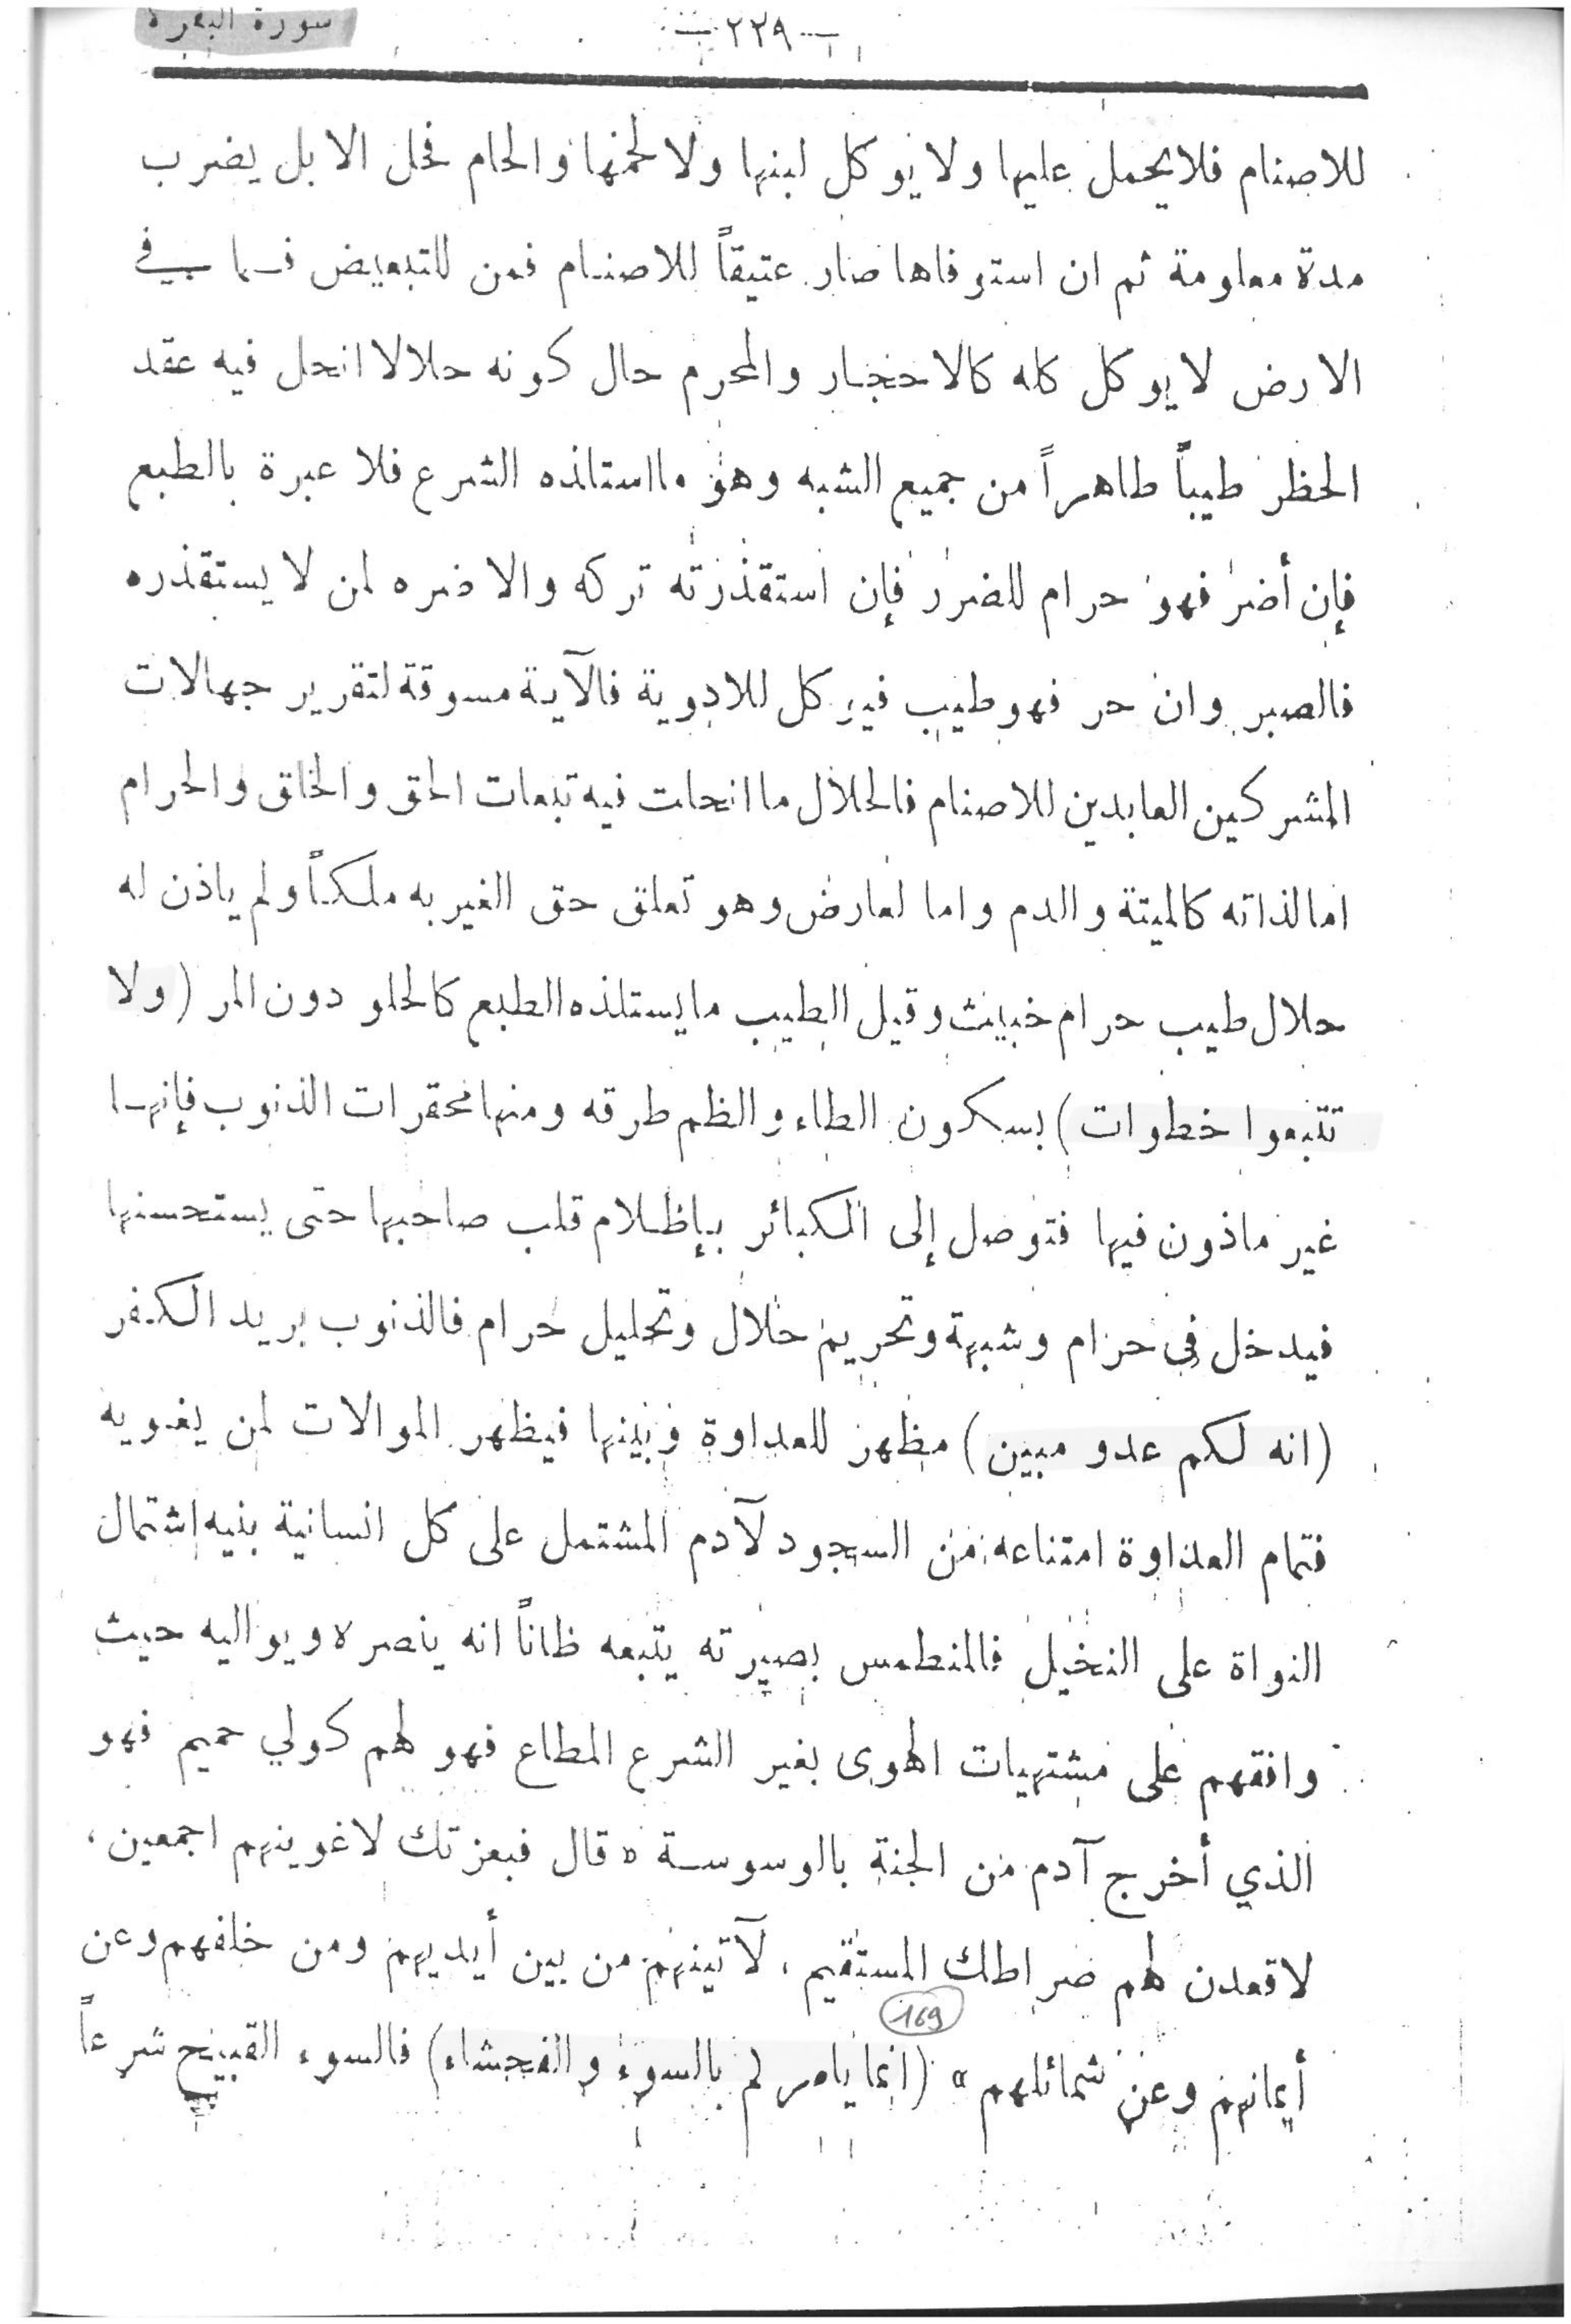 سورة البقرة
— ٢٢٩ —
للاصنام فلا يحمل عليها ولا يوكل لبنها ولا لحمها والحام فحل الابل يضرب
مدة معلومة ثم ان استوفاها صار عتيقاً للاصنام فمن للتبعيض فما في
الارض لا يوكل كله كالاحجار والمحرم حال كونه حلالا انحل فيه عقد
الحظر طيباً طاهراً من جميع الشبه وهو ما استلذه الشرع فلا عبرة بالطبع
فإن أضر فهو حرام للضرر فإن استقذرته تركه والا ضره لمن لا يستقذره
فالصبر وان حر فهو طيب فيوكل للادوية فالآية مسوقة لتقرير جهالات
المشركين العابدين للاصنام فالحلال ما انحلت فيه تبعات الحق والخلق والحرام
اما لذاته كالميتة والدم واما لعارض وهو تعلق حق الغير به ملكاً ولم ياذن له
حلال طيب حرام خبيث وقيل الطيب ما يستلذه الطبع كالحلو دون المر (ولا
تتبعوا خطوات) بسكون الطاء والظم طرقه ومنها محقرات الذنوب فإنها
غير ماذون فيها فتوصل إلى الكبائر بإظلام قلب صاحبها حتى يستحسنها
فيدخل في حرام وشبهة وتحريم حلال وتحليل حرام فالذنوب بريد الكفر
(انه لكم عدو مبين) مظهر للعداوة وبينها فيظهر الموالات لمن يغويه
فتمام العداوة امتناعه من السجود لآدم المشتمل على كل انسانية بنيه اشتمال
النواة على النخيل فالمنطمس بصيرته يتبعه ظاناً انه ينصره ويواليه حيث
وافقهم على مشتهيات الهوى بغير الشرع المطاع فهو لهم كولي حميم فهو
الذي أخرج آدم من الجنة بالوسوسة « قال فبعزتك لاغوينهم اجمعين ،
لاقعدن لهم صراطك المستقيم ، لآتينهم من بين أيديهم ومن خلفهم وعن
169
أيمانهم وعن شمائلهم » (انما يامركم بالسوء والفحشاء) فالسوء القبيح شرعاً